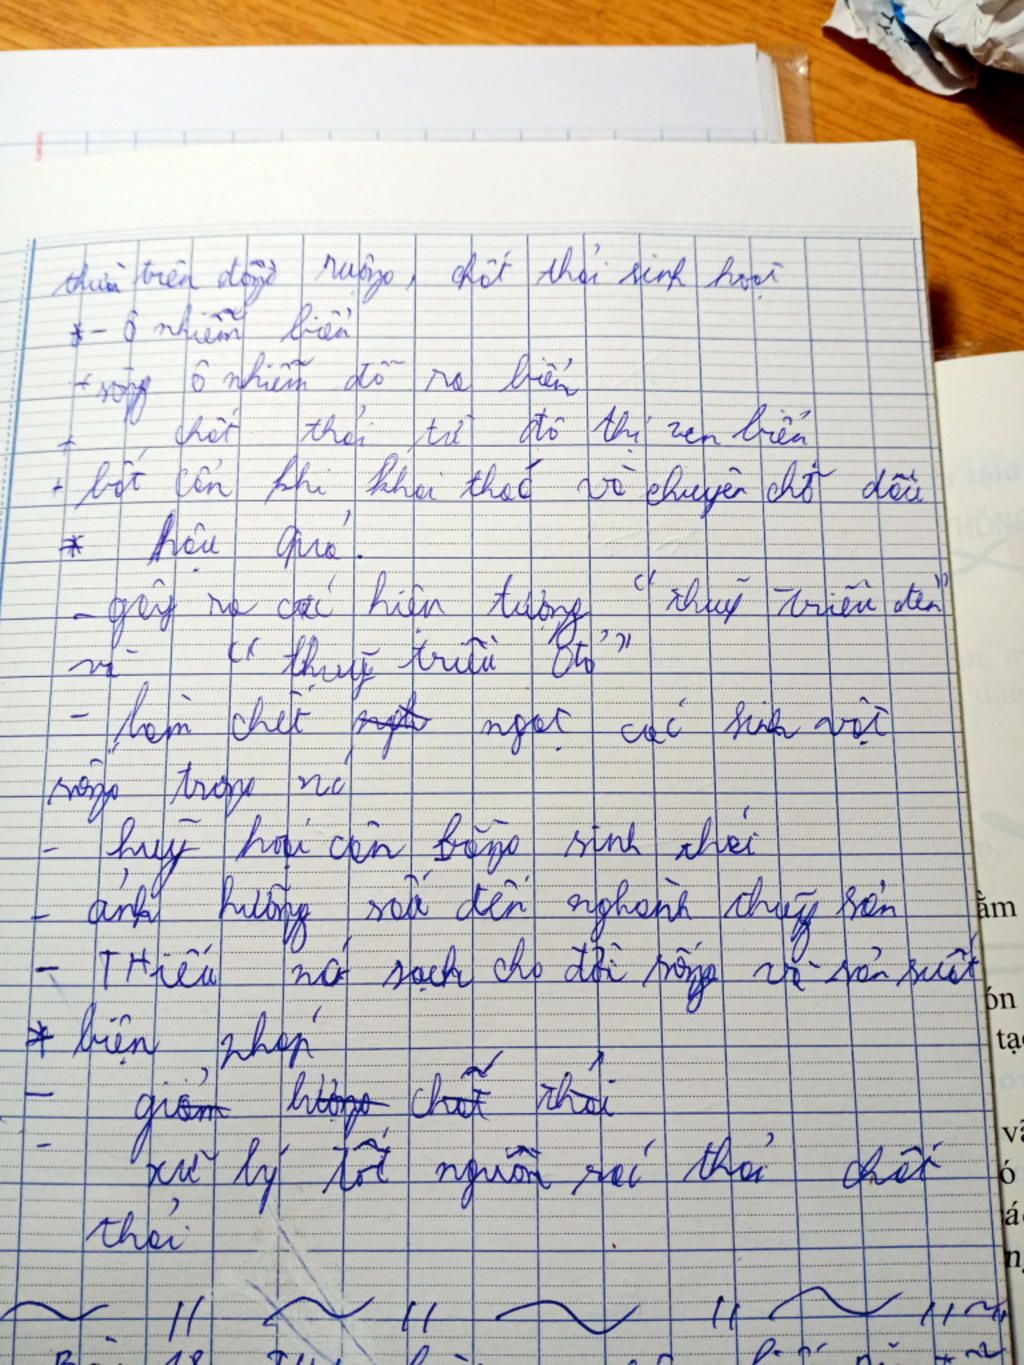 thừa trên đồng ruộng, chất thải sinh hoạt
* - ô nhiễm biển
+ sông ô nhiễm đổ ra biển
+ chất thải từ đô thị ven biển
+ bất cẩn khi khai thác và chuyên chở dầu
* hậu quả.
- gây ra các hiện tượng "thuỷ triều đen"
và "thuỷ triều đỏ"
- làm chết ngạt các sinh vật
sống trong nó
- huỷ hoại cân bằng sinh thái
- ảnh hưởng xấu đến nghành thuỷ sản
- THiếu nớ sạch cho đời sống và sản suất
* biện pháp
- giảm lượng chất thải
- xử lý tốt nguồn rác thải chất
thải
Bài 18